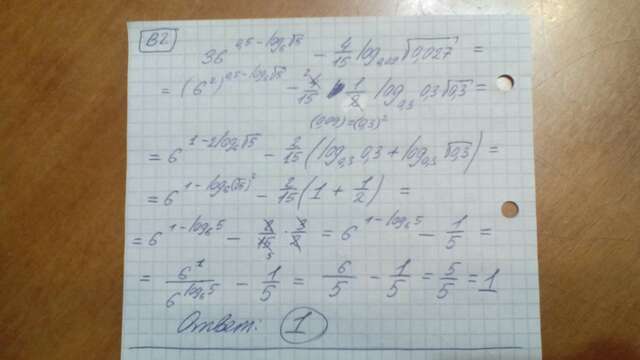 B2
36^(0,5-log₆√5) - 4/15 log₀,₀₉ √0,027 =
= (6²)^(0,5-log₆√5) - 4/15 · 1/2 log₀,₃ 0,3√0,3 =
(0,09) = (0,3)²
= 6^(1-2log₆√5) - 2/15 (log₀,₃ 0,3 + log₀,₃ √0,3) =
= 6^(1-log₆(√5)²) - 2/15 (1 + 1/2) =
= 6^(1-log₆5) - 2/15 · 3/2 = 6^(1-log₆5) - 1/5 =
= 6¹/6^(log₆5) - 1/5 = 6/5 - 1/5 = 5/5 = 1
Ответ: 1